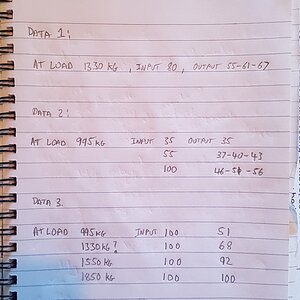 DATA 1:
AT LOAD 1330 KG , INPUT 80 , OUTPUT 55-61-67
DATA 2:
AT LOAD 995 KG INPUT 35 OUTPUT 35
55 37-40-43
100 46-51-56
DATA 3.
AT LOAD 995 KG INPUT 100 51
1330 KG ? 100 68
1550 KG 100 92
1850 KG 100 100